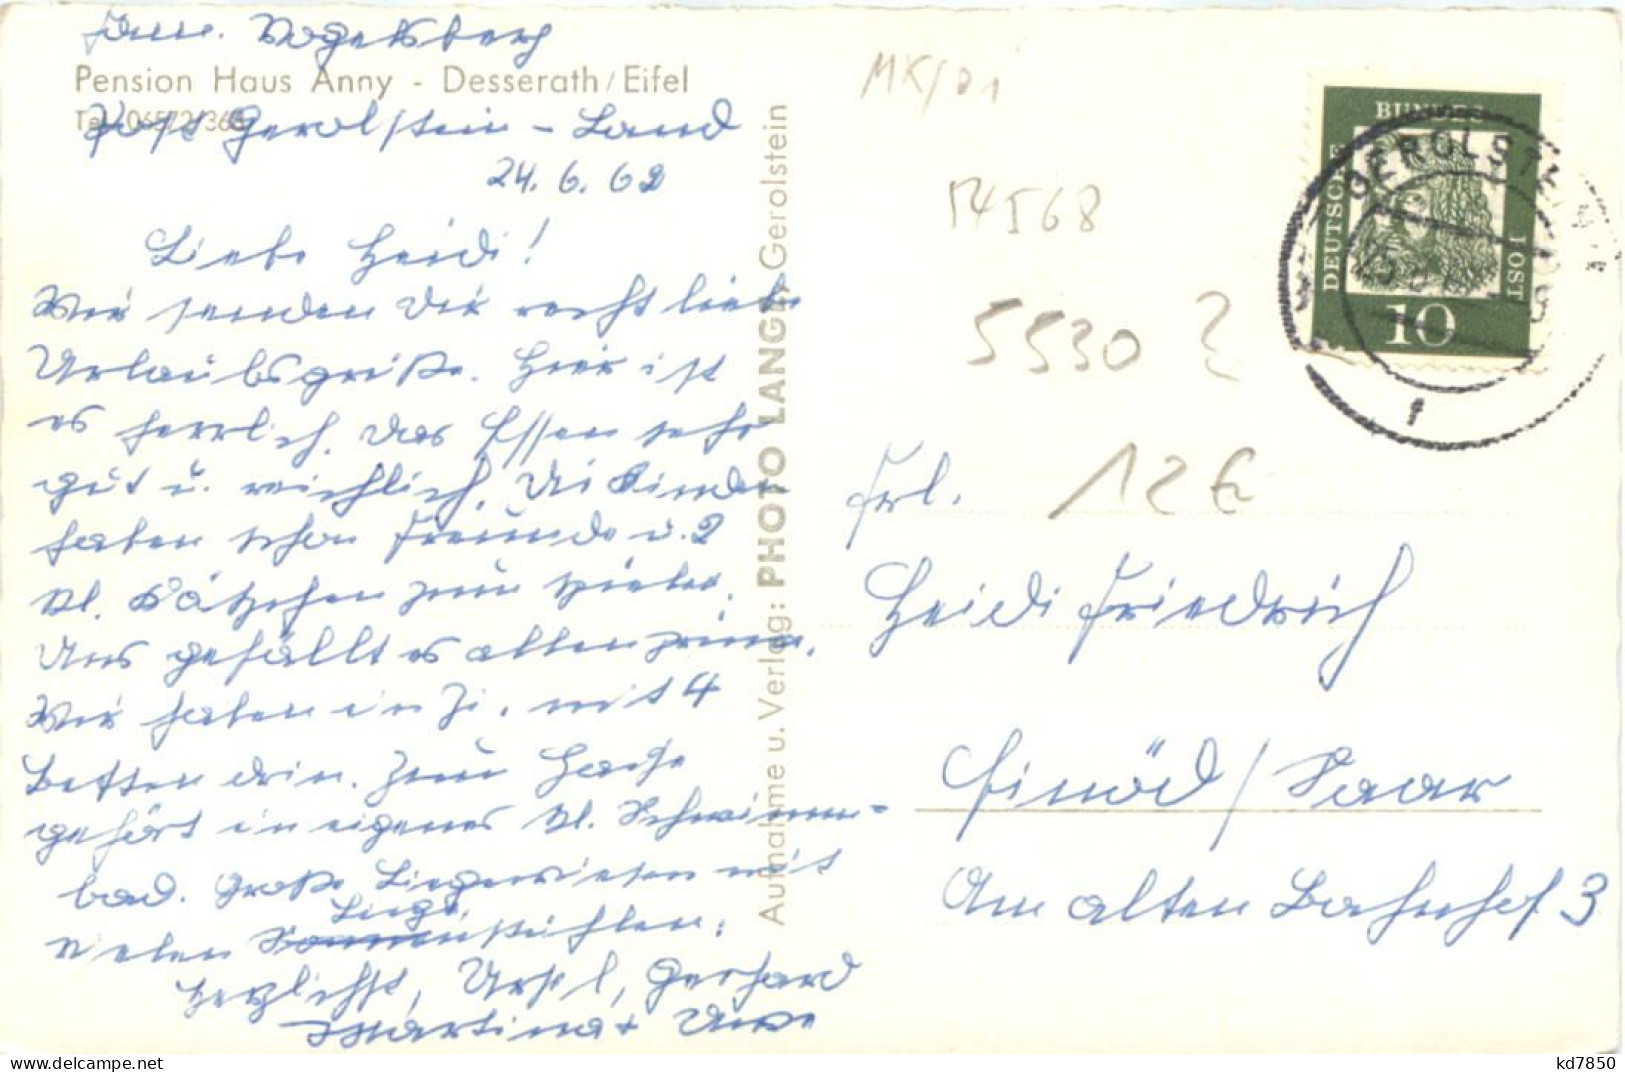 Vogelsberg
Pension Haus Anny - Desserath/Eifel
Tel. 06572/368
Post Gerolstein - Land
24. 6. 62
Liebe Heidi!
Wir senden Dir recht liebe
Urlaubsgrüße. Hier ist
es herrlich. Das Essen sehr
gut u. reichlich. Die Kinder
haben schon Freunde u. 2
kl. Kätzchen zum spielen.
Uns gefällt es allen prima.
Wir haben ein Zi. mit 4
Betten drin. Zum Hause
gehört ein eigenes kl. Schwimm-
bad. Große Liegewiesen mit
vielen Liegestühlen.
Herzlichst, Ursel, Gerhard
Martina + Uwe
Aufnahme u. Verlag: PHOTO LANGE, Gerolstein
MK/01
54568
5530
12 €
DEUTSCHE
BUNDES
POST
10
GEROLSTEIN
f
Frl.
Heidi Friedrich
Einöd / Saar
Am alten Bahnhof 3
kd7850